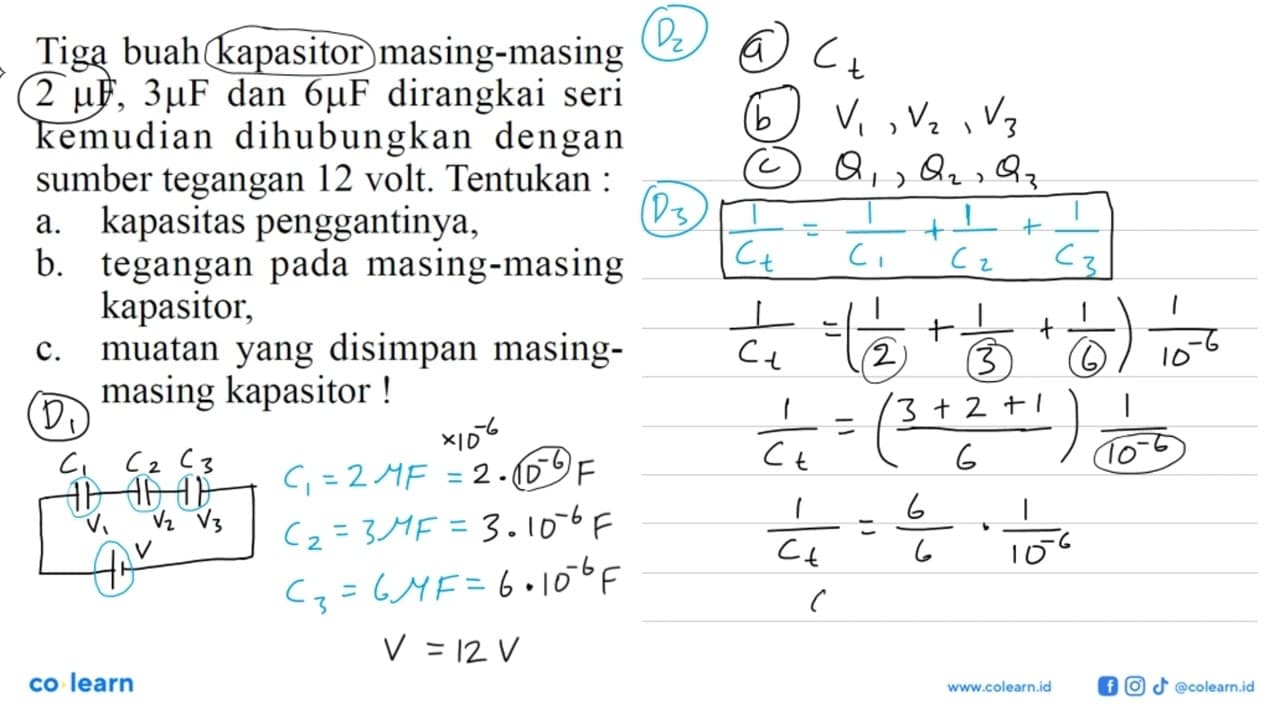 Tiga buah kapasitor masing-masing
2 μF, 3μF dan 6μF dirangkai seri
kemudian dihubungkan dengan
sumber tegangan 12 volt. Tentukan :
a. kapasitas penggantinya,
b. tegangan pada masing-masing
kapasitor,
c. muatan yang disimpan masing-
masing kapasitor !
D1
C1 C2 C3
V1 V2 V3
V
×10^-6
C1 = 2 μF = 2 . 10^-6 F
C2 = 3 μF = 3 . 10^-6 F
C3 = 6 μF = 6 . 10^-6 F
V = 12 V
D2
a Ct
b V1 , V2 , V3
c Q1 , Q2 , Q3
D3
1/Ct = 1/C1 + 1/C2 + 1/C3
1/Ct = (1/2 + 1/3 + 1/6) 1/10^-6
1/Ct = (3 + 2 + 1 / 6) 1/10^-6
1/Ct = 6/6 . 1/10^-6
(
co learn
www.colearn.id
@colearn.id